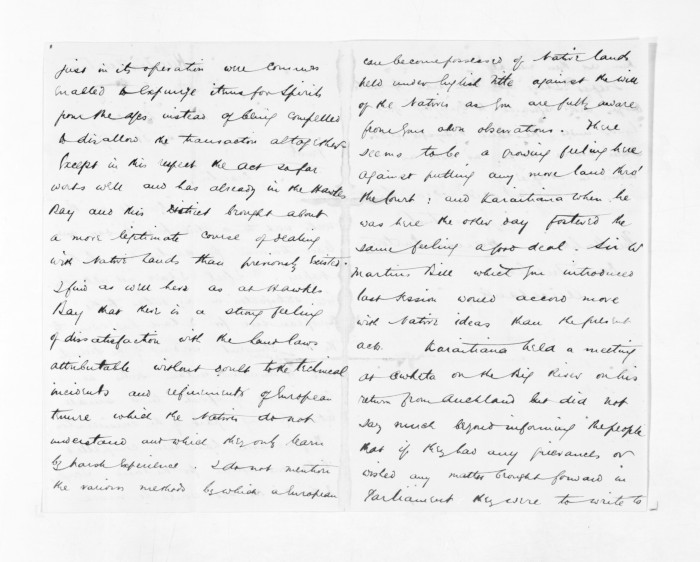 just in its operation were Commrs
enabled to expunge items for Spirits
from the instead of being compelled
to disallow the transaction altogether.
Except in this respect the act so far
works well and has already in the Hawkes
Bay and this District brought about
a more legitimate course of dealing
with Native lands than previously existed.
I find as well here as at Hawkes
Bay that there is a strong feeling
of dissatisfaction with the land laws
attributable without doubt to the technical
incidents and requirements of European
tenure which the Natives do not
understand and which they only learn
by harsh experience. I do not mention
the various methods by which a European
can become possessed of Native lands
held under English title against the will
of the Natives as you are fully aware
from your own observations. There
seems to be a growing feeling here
against putting any more land thro'
the Court; and Karaitiana when he
was here the other day fostered the
same feeling a good deal. Sir W
Martins Bill which you introduced
last session would accord more
with Native ideas than the present
act. Karaitiana held a meeting
at on the Big River on his
return from Auckland but did not
say much beyond informing the people
that if they had any grievances or
wished any matter brought forward in
Parliament they were to write to